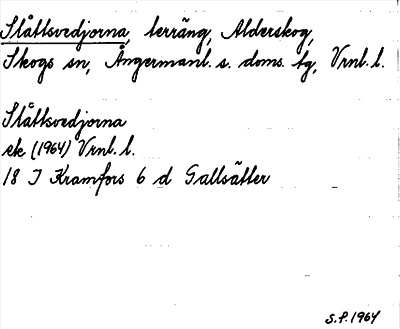 Slåttsvedjorna, terräng, Alderskog,
Skogs sn, Ångermanl. s. doms. tg, Vrnl. l.
Slåttsvedjorna
ek (1964) Vrnl. l.
18 I Kramfors 6 d Gallsätter
S.F. 1964